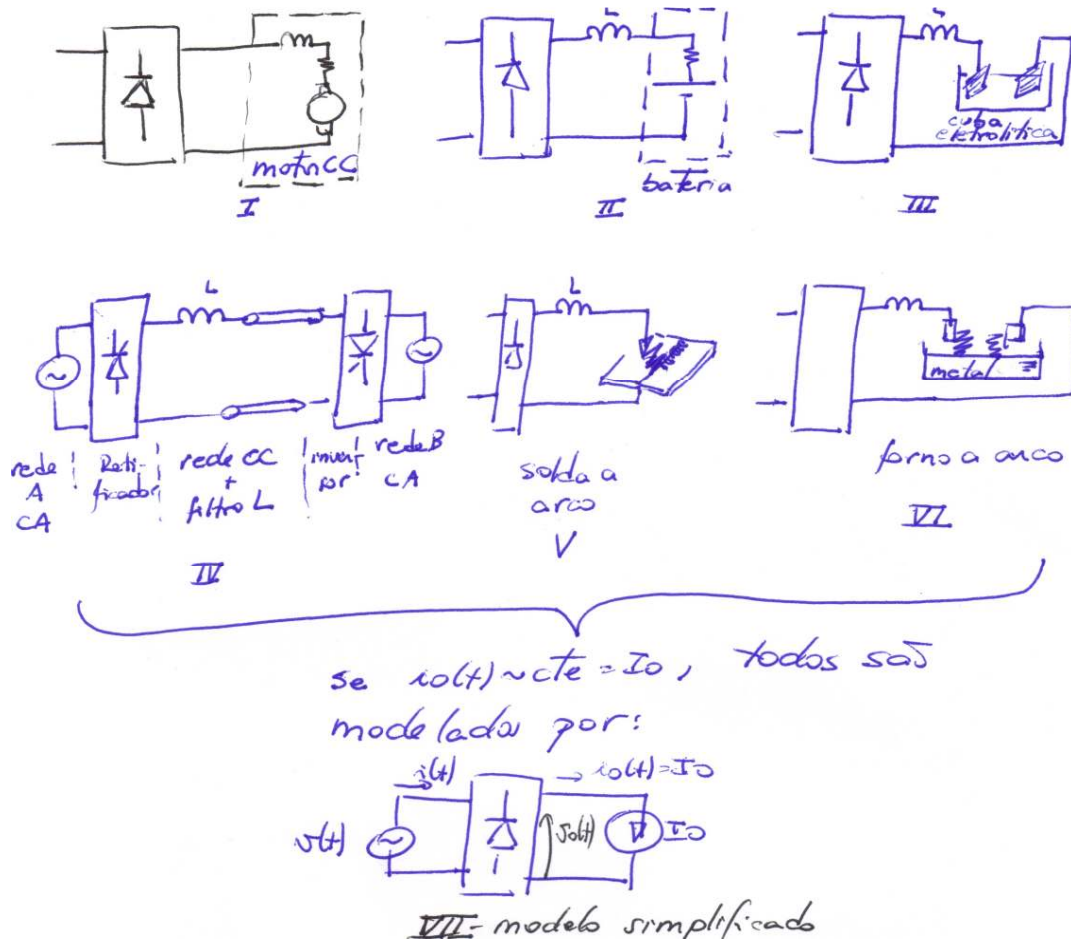 L
L
motor CC
bateria
cuba
eletrolítica
I
II
III
L
L
metal
rede
A
CA
Reti-
ficador
rede CC
+
filtro L
inver-
sor
rede B
CA
solda a
arco
forno a arco
IV
V
VI
se io(t) ~ cte = Io, todos são
modelados por:
i(t)
→ io(t) = Io
v(t)
vo(t)
Io
VII - modelo simplificado